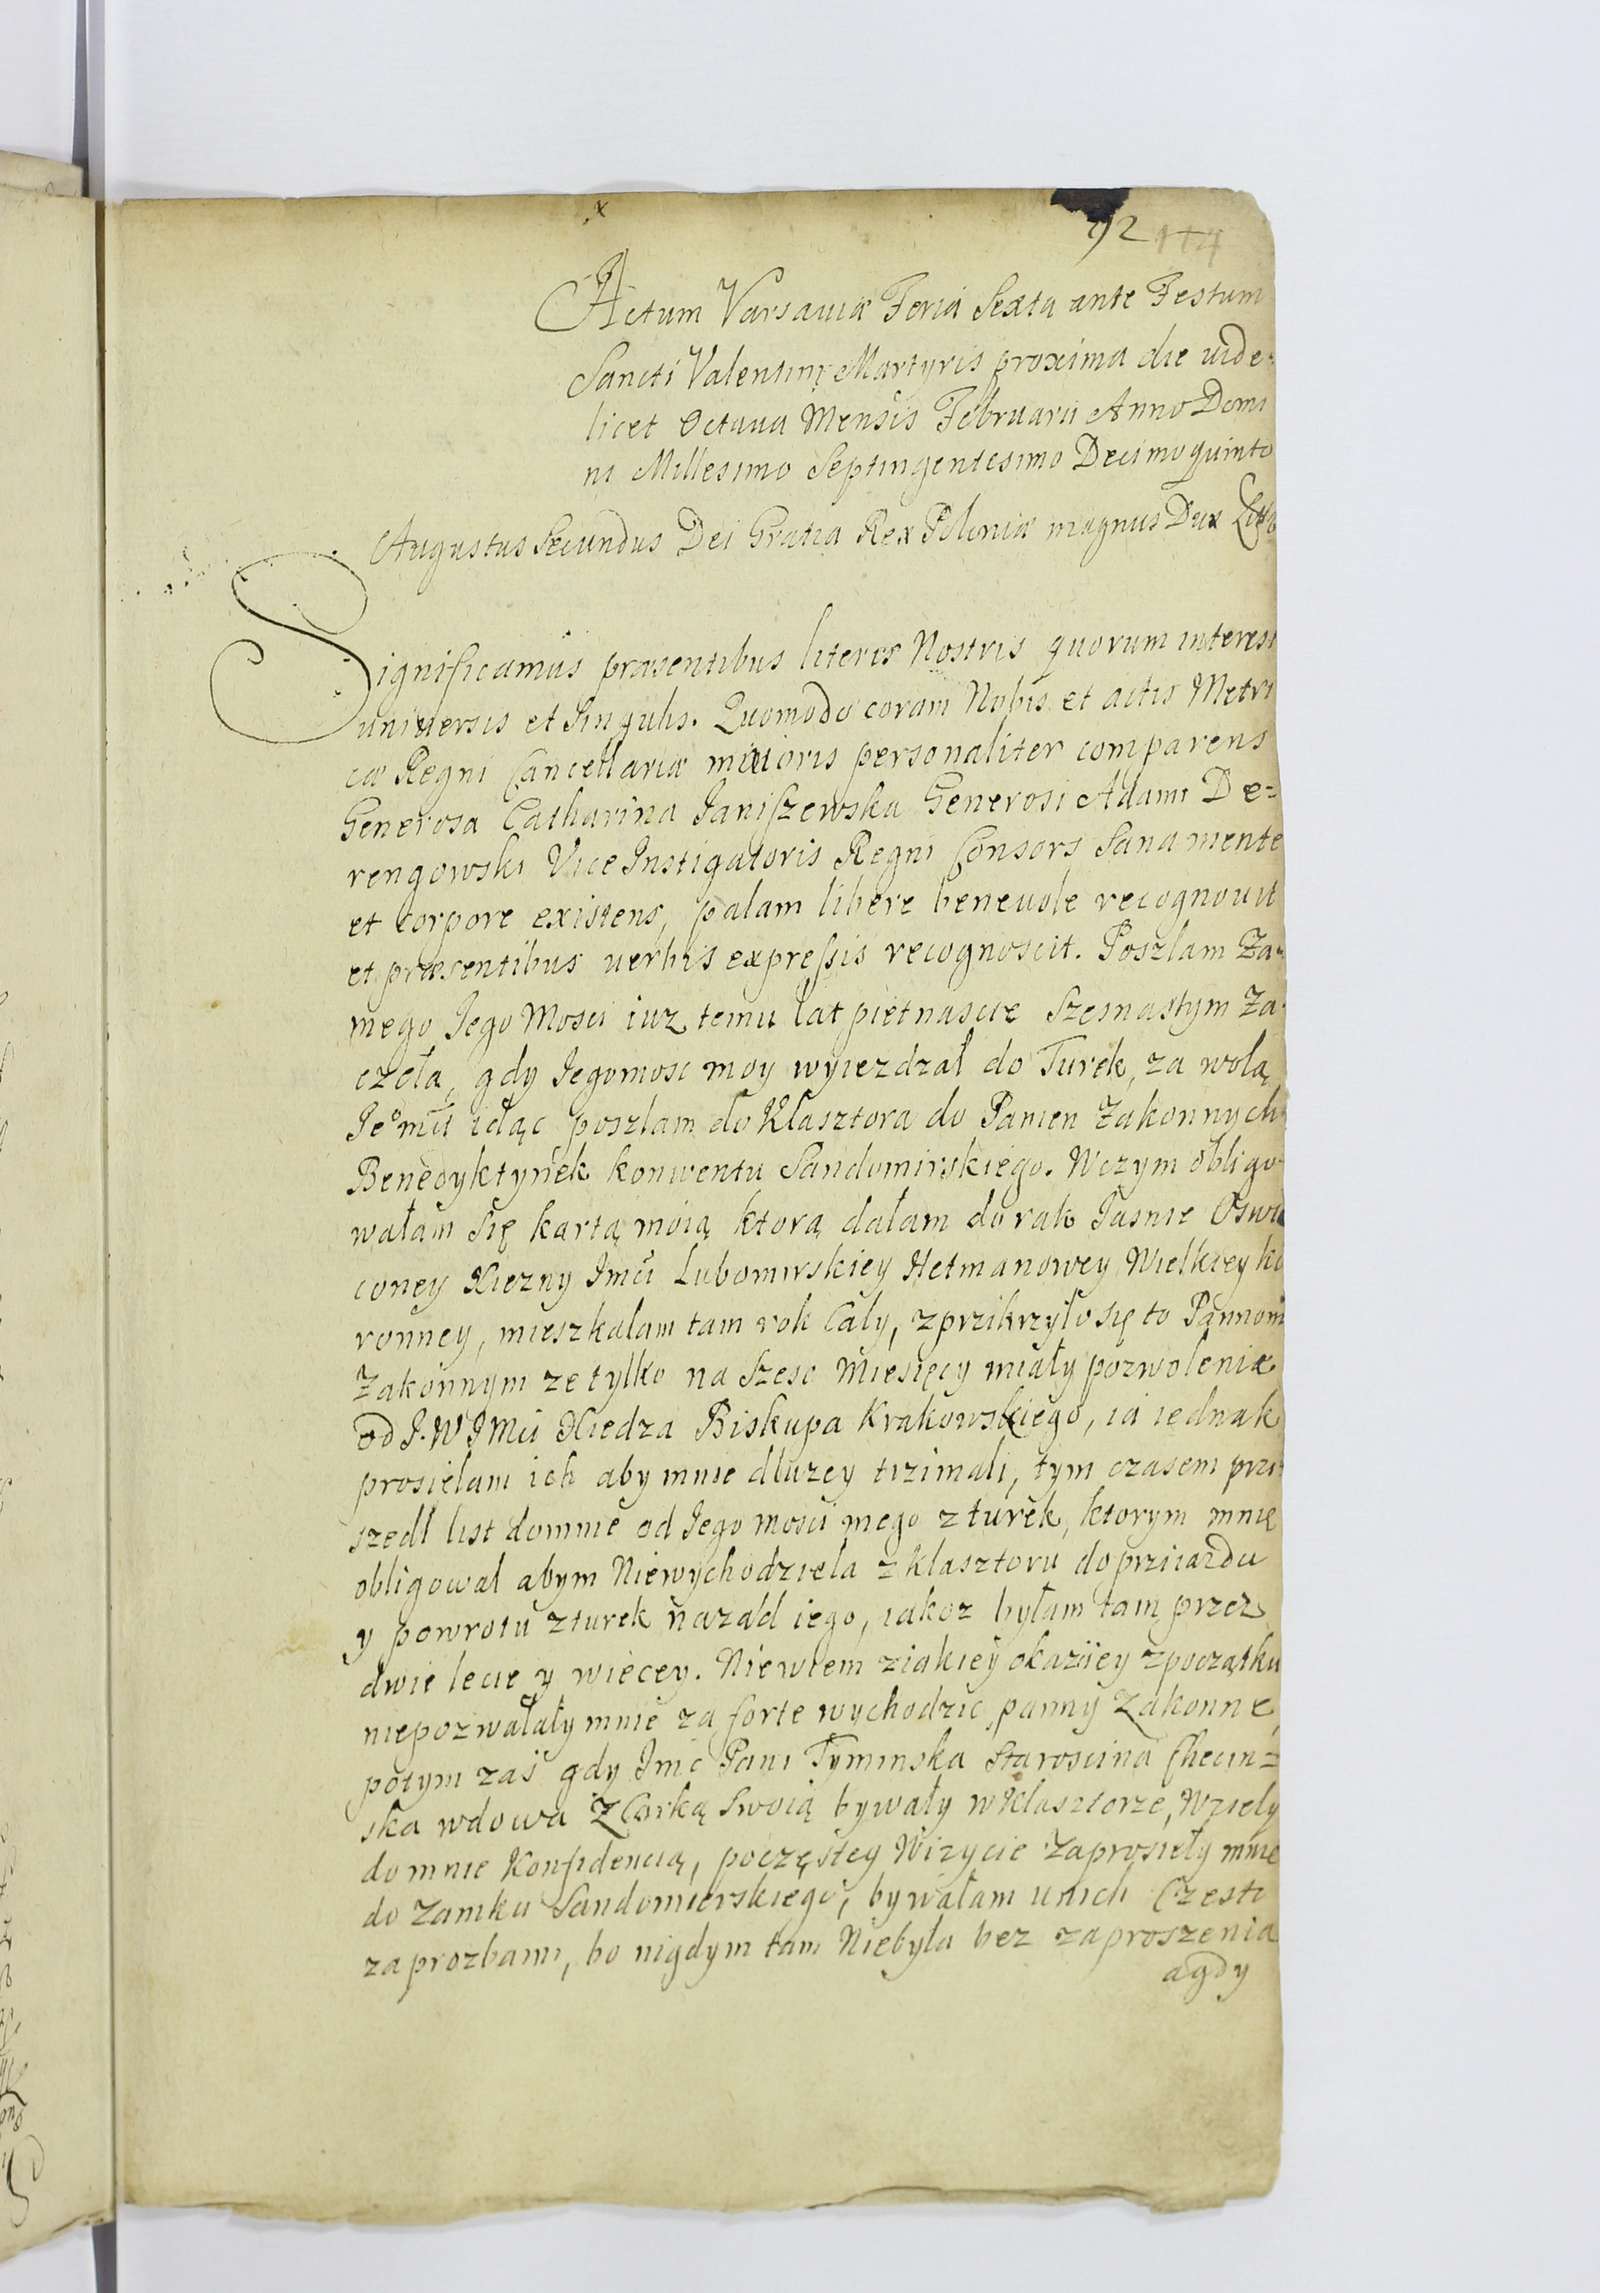 92 174
Actum Varsaviæ Feria Sexta ante Festum
Sancti Valentini Martyris proxima die vide-
licet Octava Mensis Februarii Anno Domi
ni Millesimo Septingentesimo Decimo quinto
Augustus Secundus Dei Gratia Rex Poloniæ magnus Dux
Significamus præsentibus literis Nostris quorum interest
universis et Singulis. Quomodo coram Nobis et actis Metri
cæ Regni Cancellariæ minoris personaliter comparens
Generosa Catharina Janiszewska Generosi Adami De-
rengowski Vice Instigatoris Regni Consors Sana mente
et corpore existens, palam libere benevole recognovit
et præsentibus verbis expressis recognoscit. Poszlam Za-
mego Jego Mosci iuz temu lat pietnascie Szesnastym Za-
czeła, gdy Jegomosc moy wyiezdzał do Turek, za wolą
Jeºmci idąc poszlam do Klasztora do Panien Zakonnych
Benedyktynek konwentu Sandomirskiego. Wczym obligo-
wałam Się kartą moią ktorą dałam do rak Jasnie Oswie
coney Xiezny Jmci Lubomirskiey Hetmanowey Wielkiey ko
ronney, mieszkalam tam rok Cały, zprzikrzyło się to Pannom
Zakonnym ze tylko na Szesc Miesięcy miały pozwolenie
od J. W JMci Xiedza Biskupa Krakowskiego, ia iednak
prosielam ich aby mnie dłuzey trzimali, tym czasem przi-
szedł list domnie od Jego mosci mego z turek, ktorym mnię
obligował abym Niewychodzieła z klasztoru do przijazdu
y powrotu z turek nazad iego, iakoz byłam tam przez
dwie lecie y wiecey. Niewiem ziakiey okaziiey zpoczątku
niepozwalały mnie za forte wychodzic, panny Zakonne,
potym zaś gdy Jmc Pani Tyminska Staroscina Checin=
ska wdowa Z Corką Swoią bywały w Klasztorze, Wzieły
do mnie Konfidencią, poczęstey Wizycie Zaprosieły mnie
do Zamku Sandomierskiego, bywałam unich Czesto
za prozbami, bo nigdym tam Niebyła bez zaproszenia
agdy